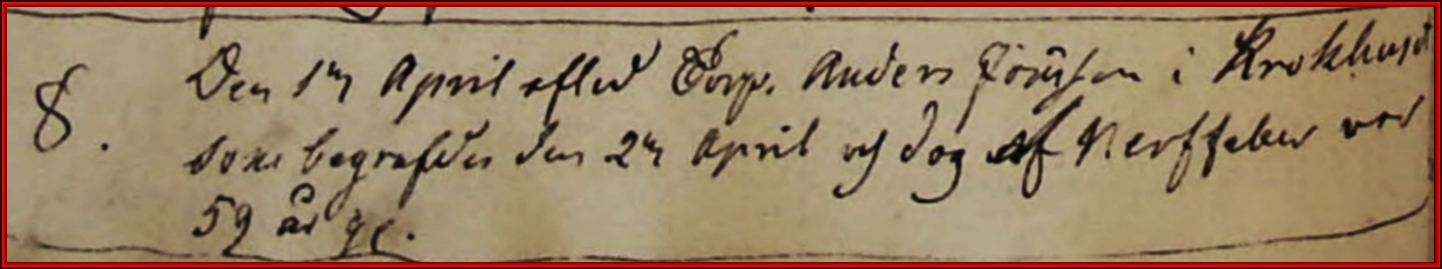 8. Den 1m April afled Corp. Anders Jönsson i Krokhuset
som begrafdes den 2m April och dog af Nerffeber var
59 år gl.